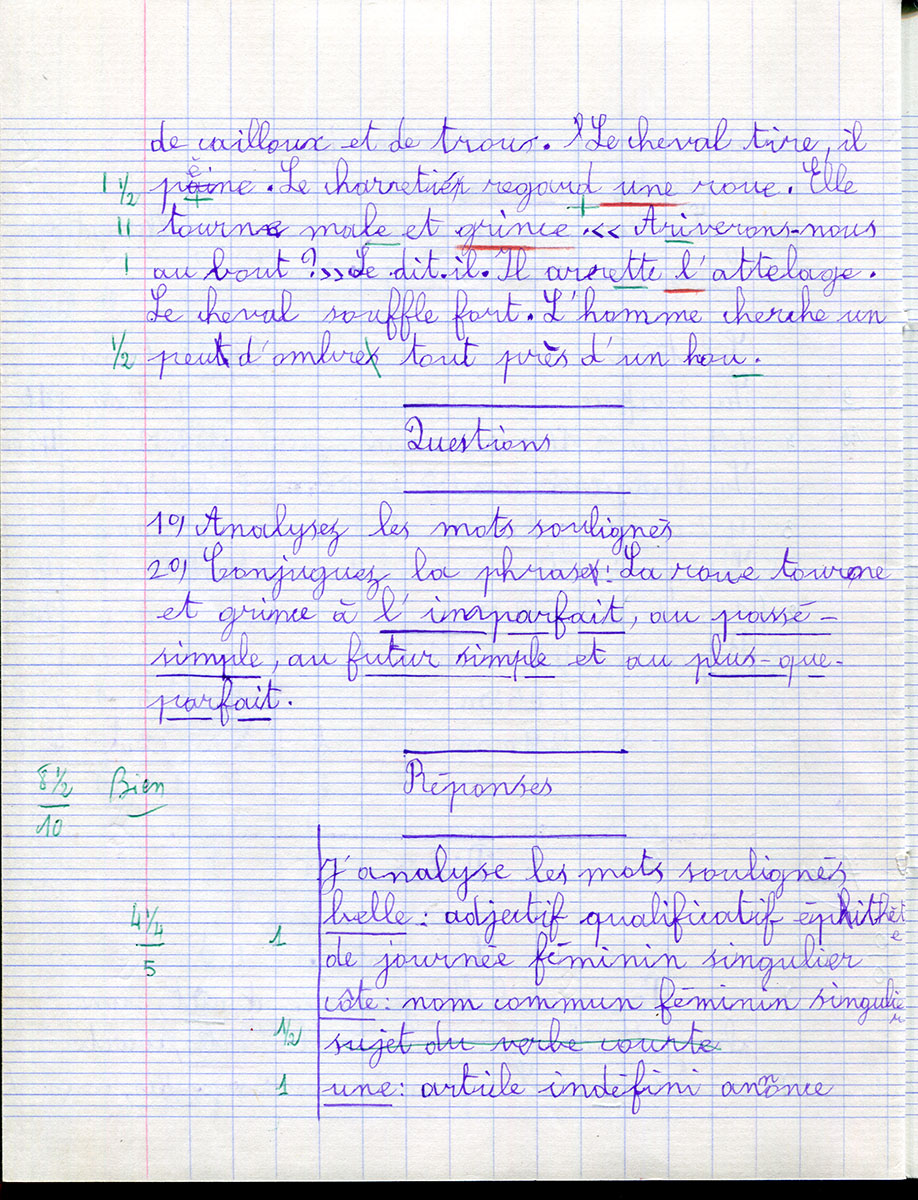 de cailloux et de trous. Le cheval tire, il
1 1/2 peine. Le charretier regard une roue. Elle
11 tourne male et grince << Ariverons-nous
1 au bout ?>> Le dit-il. Il arrette l'attelage.
Le cheval souffle fort. L'homme cherche un
1/2 peut d'ombre tout près d'un hou.
Questions
1o) Analysez les mots soulignés
2o) Conjuguez la phrase : La roue tourne
et grince à l'imparfait, au passé-
simple, au futur simple et au plus-que-
parfait.
8 1/2 / 10 Bien
Réponses
J'analyse les mots soulignés
4 1/4 / 5 1 belle : adjectif qualificatif épithète
de journée féminin singulier
côte : nom commun féminin singulier
1/2 sujet du verbe courte
1 une : article indéfini annonce